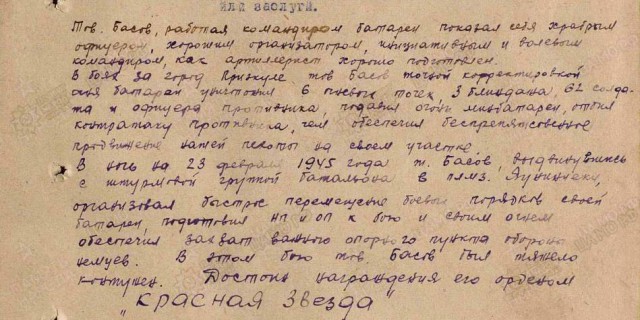 или заслуги.
Тов. Басов, работая командиром батареи показал себя храбрым
офицером, хорошим организатором, инициативным и волевым
командиром, как артиллерист хорошо подготовлен.
В боях за город Приекуле тов Басов точной корректировкой
огня батареи уничтожил 6 огневых точек, 3 блиндажа, 62 солда-
та и офицера противника, подавил огонь минбатареи, отбил
контратаку противника, чем обеспечил беспрепятственное
продвижение нашей пехоты на своем участке
В ночь на 23 февраля 1945 года т. Басов, выдвинувшись
с штурмовой группой батальона в
организовал быстрое перемещение боевых порядков своей
батареи, подготовил НП и ОП к бою и своим огнем
обеспечил захват важного опорного пункта обороны
немцев. В этом бою тов. Басов был тяжело
контужен. Достоин награждения его орденом
"Красная Звезда"